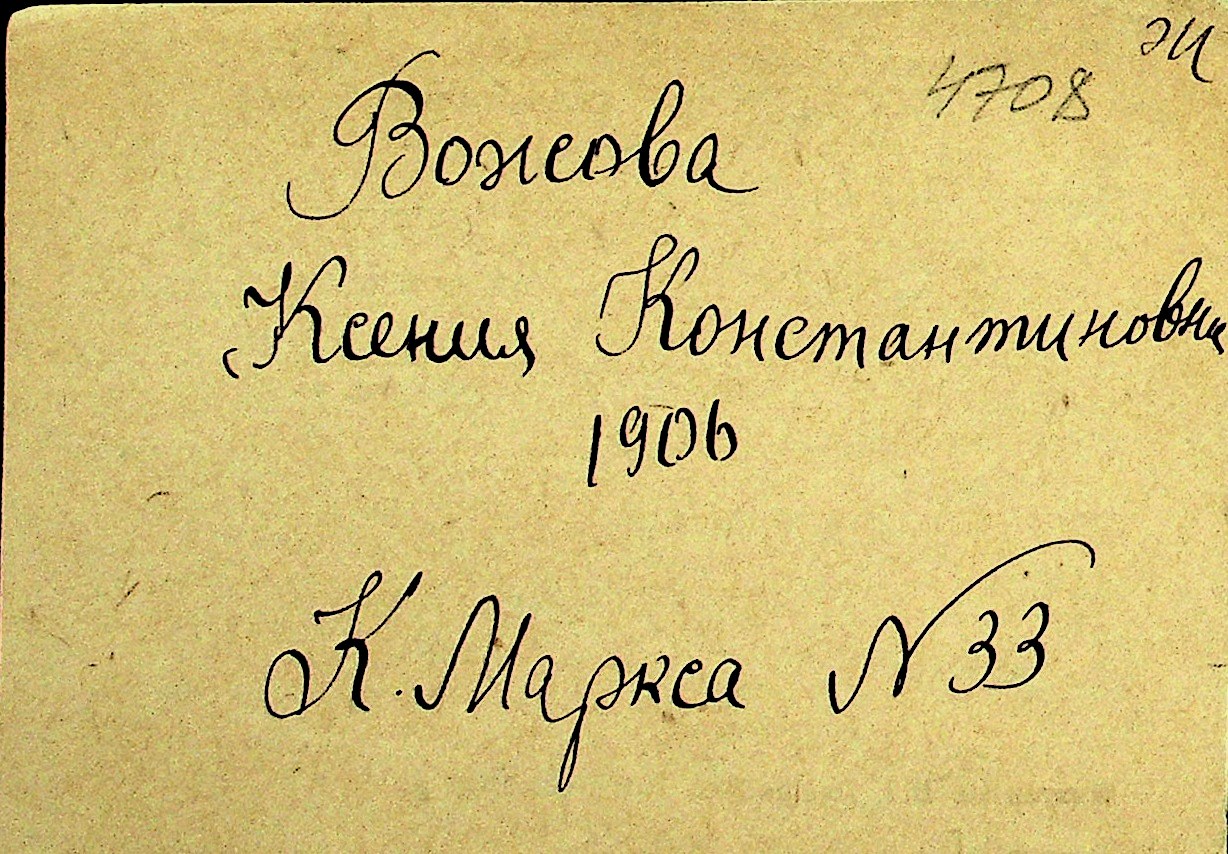 4708
Вожова
Ксения Константиновна
1906
К. Маркса N 33